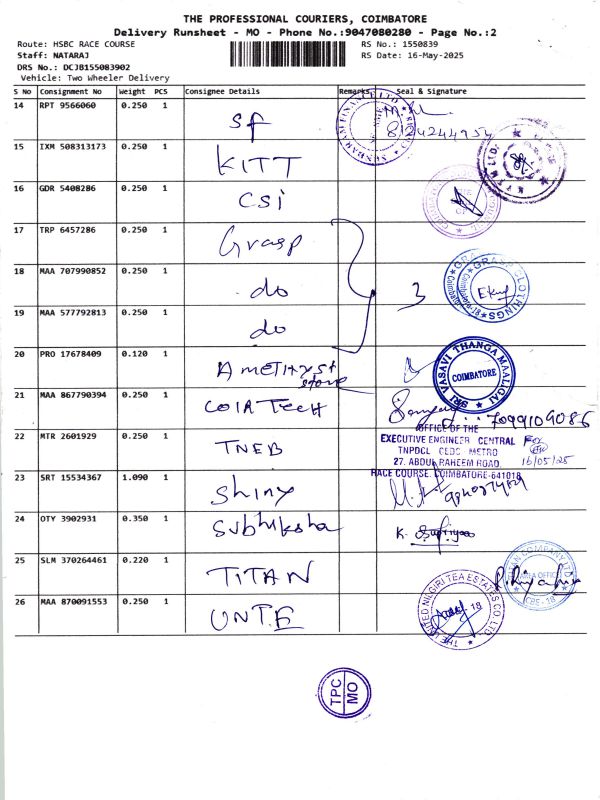 THE PROFESSIONAL COURIERS, COIMBATORE
Delivery Runsheet - MO - Phone No.:9047080280 - Page No.:2
Route: HSBC RACE COURSE
RS No.: 1550839
Staff: NATARAJ
RS Date: 16-May-2025
DRS No.: DCJB155083902
Vehicle: Two Wheeler Delivery
S No Consignment No Weight PCS Consignee Details Remarks Seal & Signature
14 RPT 9566060 0.250 1 SF
15 IXM 508313173 0.250 1 KITT
16 GDR 5408286 0.250 1 CSI
17 TRP 6457286 0.250 1 Grasp
18 MAA 707990852 0.250 1 do 3
GRASP CLOTHINGS
19 MAA 577792813 0.250 1 do
20 PRO 17678409 0.120 1 Amethyst Store
SRI VASAVI THANGA MAALIGAI
COIMBATORE
21 MAA 867790394 0.250 1 COIA Tech 7099109086
22 MTR 2601929 0.250 1 TNEB
OFFICE OF THE
EXECUTIVE ENGINEER CENTRAL
TNPDCL CEDC METRO
27. ABDUL RAHEEM ROAD
RACE COURSE, COIMBATORE-641018
16/05/25
23 SRT 15534367 1.090 1 Shiny
24 OTY 3902931 0.350 1 Subhiksha
25 SLM 370264461 0.220 1 TITAN
26 MAA 870091553 0.250 1 UNTE
THE UNITED NILGIRI TEA ESTATES CO. LTD
TPC
MO